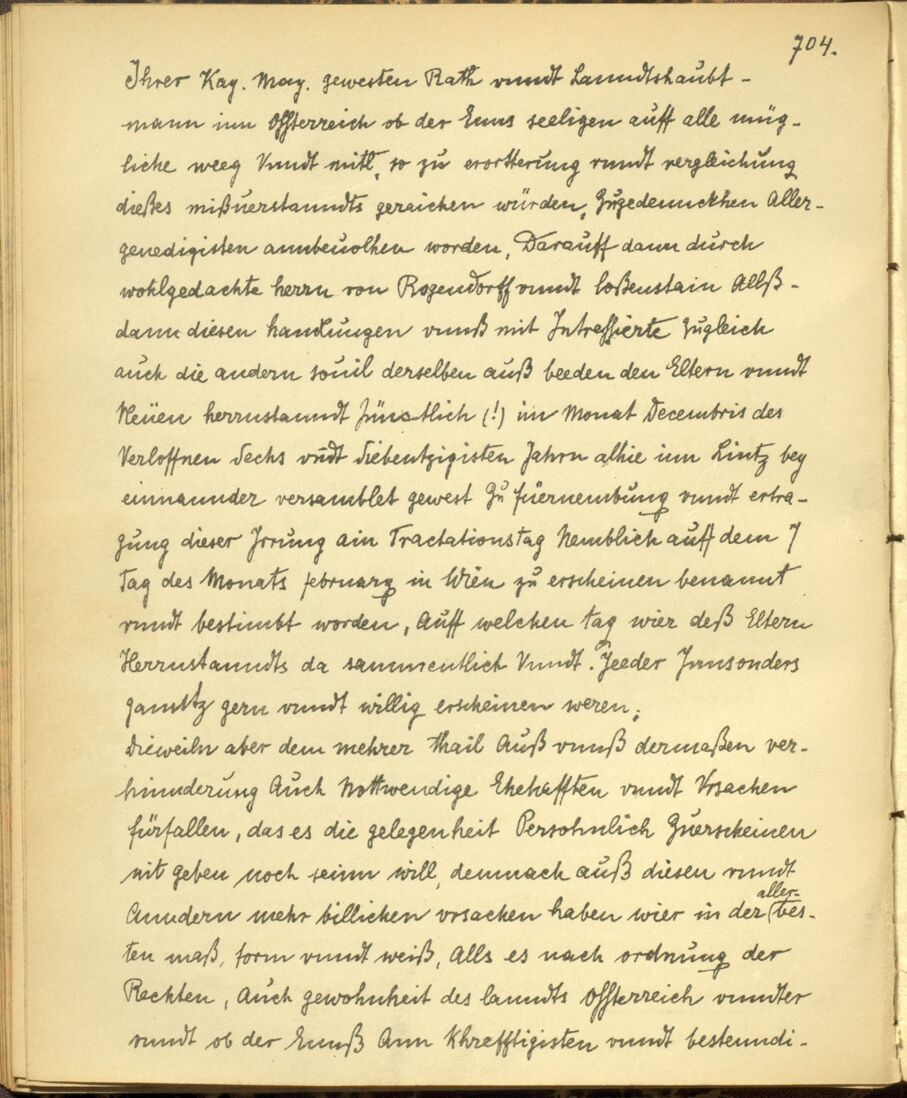 704.
Ihrer Kay. May. gewesten Rath vnndt Lanndtshaubt-
mann inn Össterreich ob der Enns seeligen auff alle müg-
liche weeg Vnndt mitl, so zu erortterung vnndt vergleichung
dießes mißuerstanndts geraichen würden, Zugedennckhen Aller-
genedigisten annbeuolhen worden, Darauff dann durch
wohlgedachte herrn von Rogendorff vnndt Loßenstain Allß-
dann diesen handlungen vnnß mit Intressierte Zugleich
auch die andern souil derselben auß beeden den Eltern vnndt
Neüen herrnstanndt Jünstlich (!) im Monat Decembris des
Verloffnen Sechs vndt Siebentzigisten Jahrn alhie inn Lintz bey
einnannder versamblet gewest Zu füernembung vnndt ertra-
gung dieser Irrung ain Tractationstag Nemblich auff dem 7
Tag des Monats february in Wien zu erscheinen benannt
vnndt bestimbt worden, Auff welchen tag wier deß Eltern
Herrnstanndts da sammentlich Vnndt. Jeeder Innsonders
ganntz gern vnndt willig erscheinen weren;
Dieweiln aber dem mehrer thail Auß vnnß dermaßen ver-
hinnderung Auch Nottwendige Ehehafften vnndt Vrsachen
fürfallen, das es die gelegenheit Persohnlich Zuerscheinen
nit geben noch seinn will, demnach auß diesen vnndt
Anndern mehr billichen vrsachen haben wier in der aller-bes-
ten maß, form vnndt weiß, Alls es nach ordnung der
Rechten, Auch gewohnheit des lanndts Össterreich vnndter
vnndt ob der Ennß Ann Khrefftigisten vnndt bestenndi-